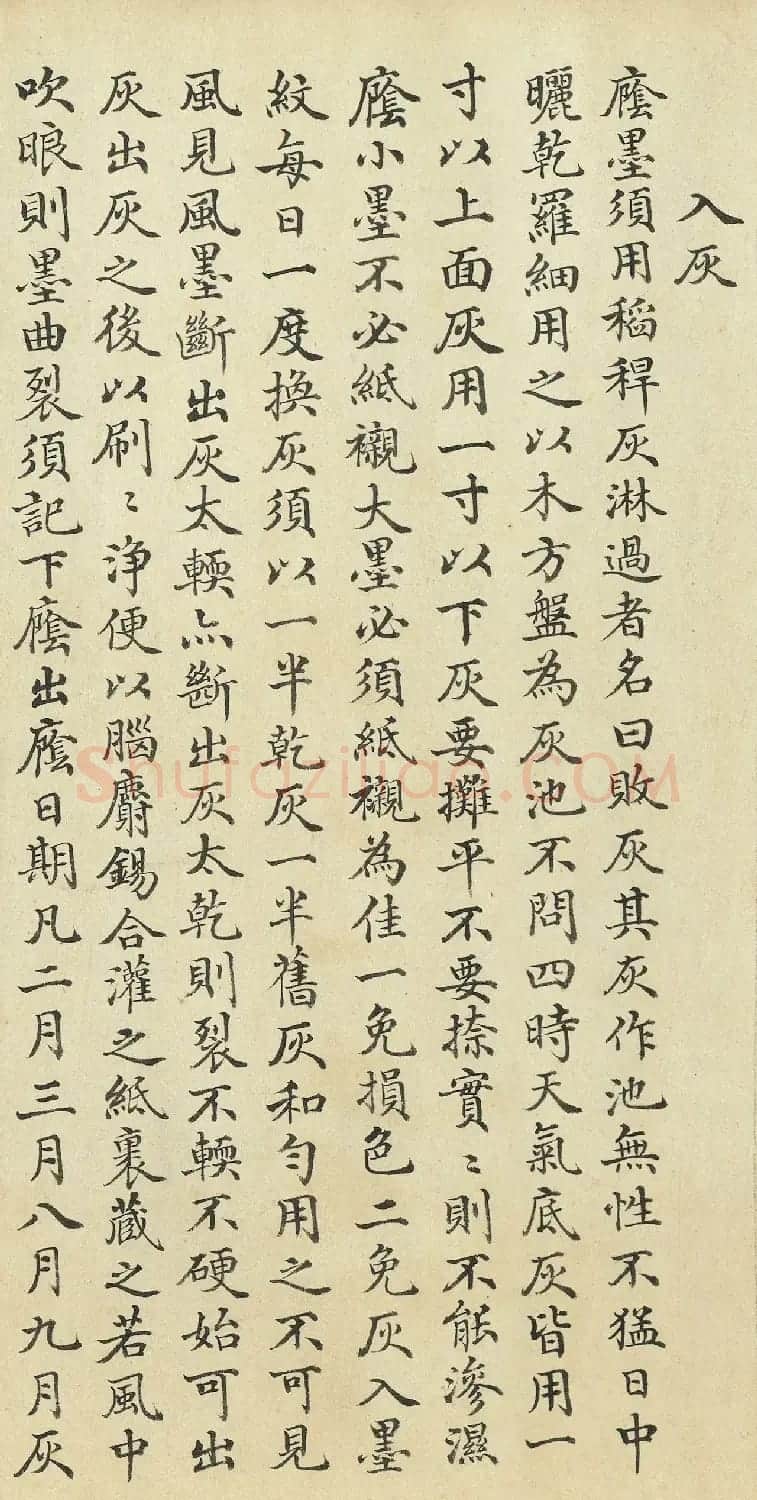 入灰
廕墨須用稻稈灰淋過者名曰敗灰其灰作池無性不猛日中
曬乾羅細用之以木方盤為灰池不問四時天氣底灰皆用一
寸以上面灰用一寸以下灰要攤平不要捺實〻則不能滲濕
廕小墨不必紙襯大墨必須紙襯為佳一免損色二免灰入墨
紋每日一度換灰須以一半乾灰一半舊灰和勻用之不可見
風見風墨斷出灰太輭亦斷出灰太乾則裂不輭不硬始可出
灰出灰之後以刷〻淨便以腦麝錫合灌之紙裏藏之若風中
吹晾則墨曲裂須記下廕出廕日期凡二月三月八月九月灰
Shufaziliao.COM